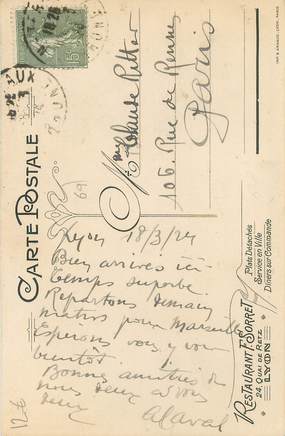 CARTE POSTALE
15c
Claude Pitter
106. Rue de Rennes
Paris
69
Lyon 18/3/24
Bien arrivés ici
temps superbe.
Repartons demain
matin pour Marseille
Espérons vous y voir
bientôt.
Bonne amitiés de
nous deux à vous
deux
Alaval
12€
RESTAURANT F. SORRET
24, QUAI DE RETZ
LYON
Plats Détachés
Service en Ville
Dîners sur Commande